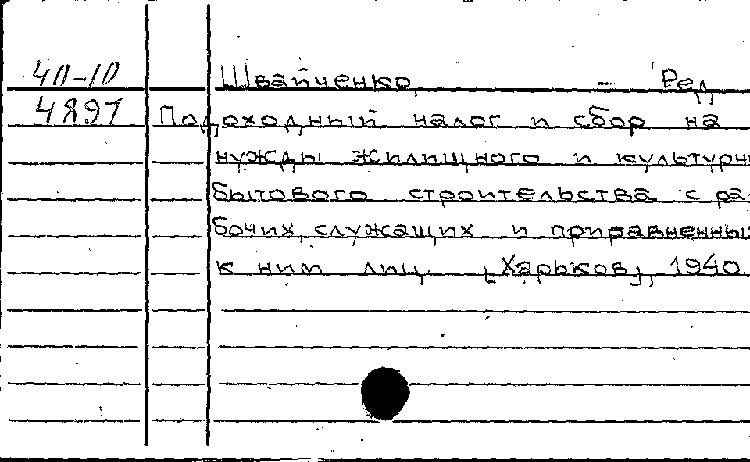 40-10 Швайченко, - Ред.
4897 Подоходный налог и сбор на
нужды жилищного и культурн
бытового строительства с ра-
бочих, служащих и приравненный
к ним лиц. [Харьков], 1940